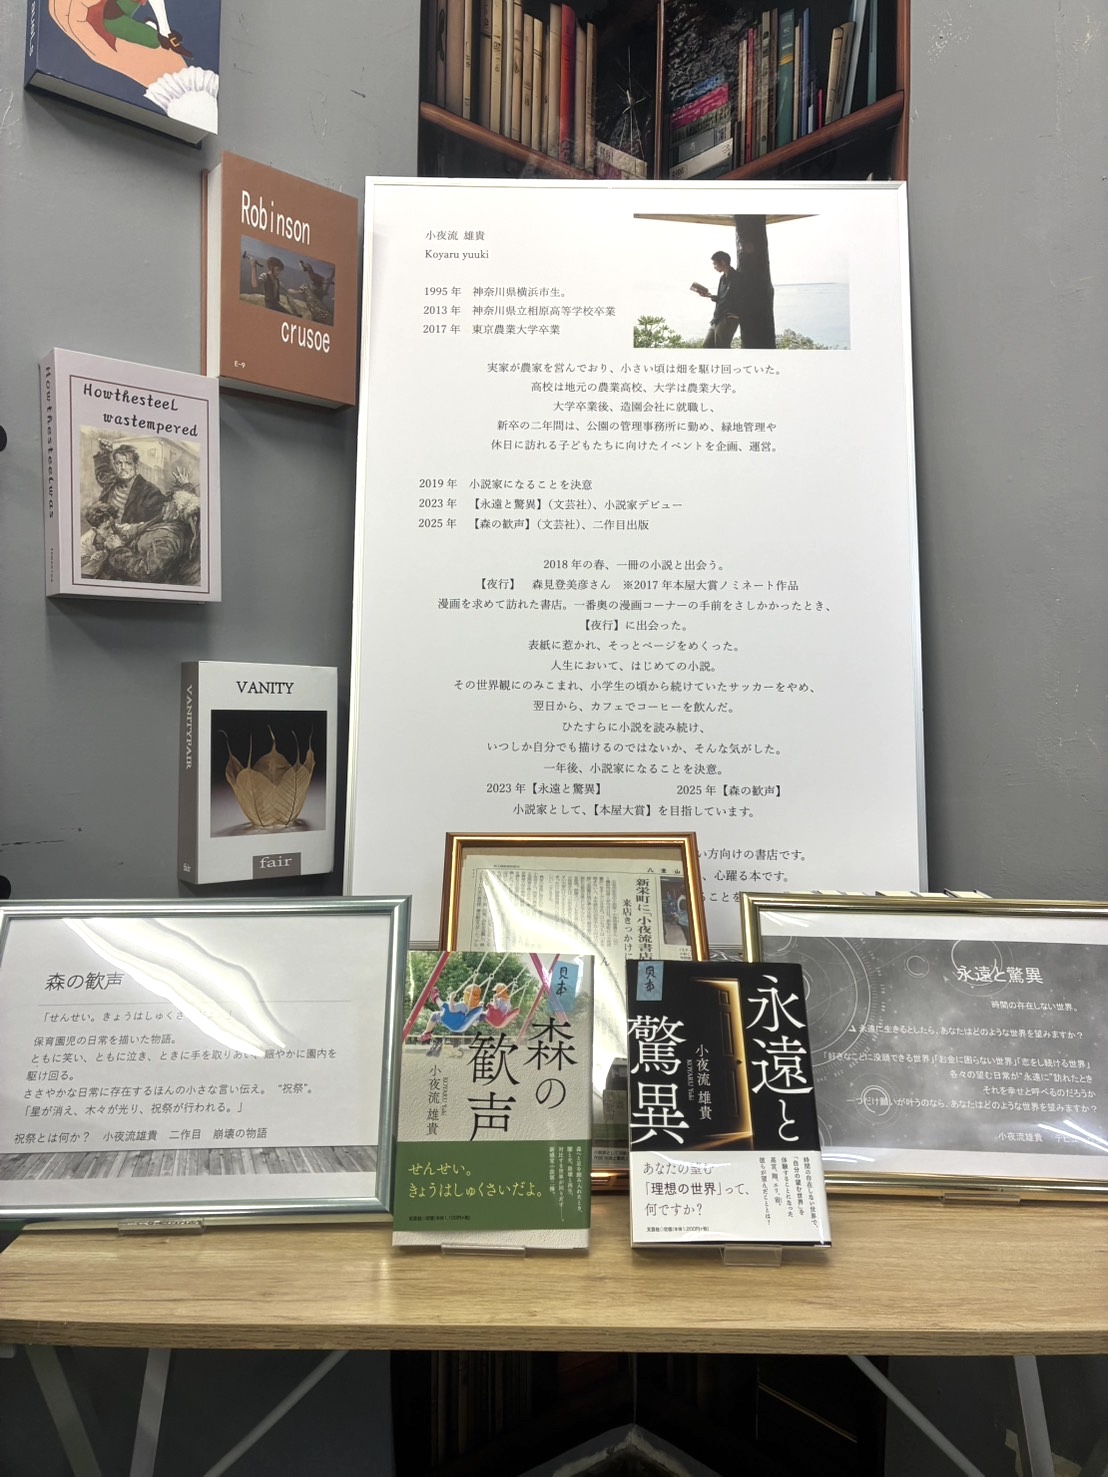 Robinson
crusoe
E-9
Howthesteel
wastempered
Howthesteelwas
VANITY
VANITYFAIR
fair
fair
小夜流 雄貴
Koyaru yuuki
1995年 神奈川県横浜市生。
2013年 神奈川県立相原高等学校卒業
2017年 東京農業大学卒業
実家が農家を営んでおり、小さい頃は畑を駆け回っていた。
高校は地元の農業高校、大学は農業大学。
大学卒業後、造園会社に就職し、
新卒の二年間は、公園の管理事務所に勤め、緑地管理や
休日に訪れる子どもたちに向けたイベントを企画、運営。
2019年 小説家になることを決意
2023年 【永遠と驚異】(文芸社)、小説家デビュー
2025年 【森の歓声】(文芸社)、二作目出版
2018年の春、一冊の小説と出会う。
【夜行】 森見登美彦さん ※2017年本屋大賞ノミネート作品
漫画を求めて訪れた書店。一番奥の漫画コーナーの手前をさしかかったとき、
【夜行】に出会った。
表紙に惹かれ、そっとページをめくった。
人生において、はじめての小説。
その世界観にのみこまれ、小学生の頃から続けていたサッカーをやめ、
翌日から、カフェでコーヒーを飲んだ。
ひたすらに小説を読み続け、
いつしか自分でも描けるのではないか、そんな気がした。
一年後、小説家になることを決意。
2023年【永遠と驚異】 2025年【森の歓声】
小説家として、【本屋大賞】を目指しています。
い方向けの書店です。
、心躍る本です。
ることを
新栄町に「小夜流書店
来店きっかけに
森の歓声
「せんせい。きょうはしゅくさ
保育園児の日常を描いた物語。
ともに笑い、ともに泣き、ときに手を取りあい、賑やかに園内を
駆け回る。
ささやかな日常に存在するほんの小さな言い伝え。 “祝祭”。
「星が消え、木々が光り、祝祭が行われる。」
祝祭とは何か? 小夜流雄貴 二作目 崩壊の物語
見本
森の
歓声
小夜流 雄貴
KOYARU Yuki
せんせい。
きょうはしゅくさいだよ。
見本
永遠と
驚異
小夜流 雄貴
KOYARU Yuki
あなたの望む
「理想の世界」って、
何ですか?
時間の存在しない世界で、
「自分の望む世界」を
体験することになった
彼らが望んだこととは?
永遠と驚異
時間の存在しない世界。
永遠に生きるとしたら、あなたはどのような世界を望みますか?
「好きなことに没頭できる世界」「お金に困らない世界」「恋をし続ける世界」
各々の望む日常が“永遠に”訪れたとき
それを幸せと呼べるのだろうか
一つだけ願いが叶うのなら、あなたはどのような世界を望みますか?
小夜流雄貴